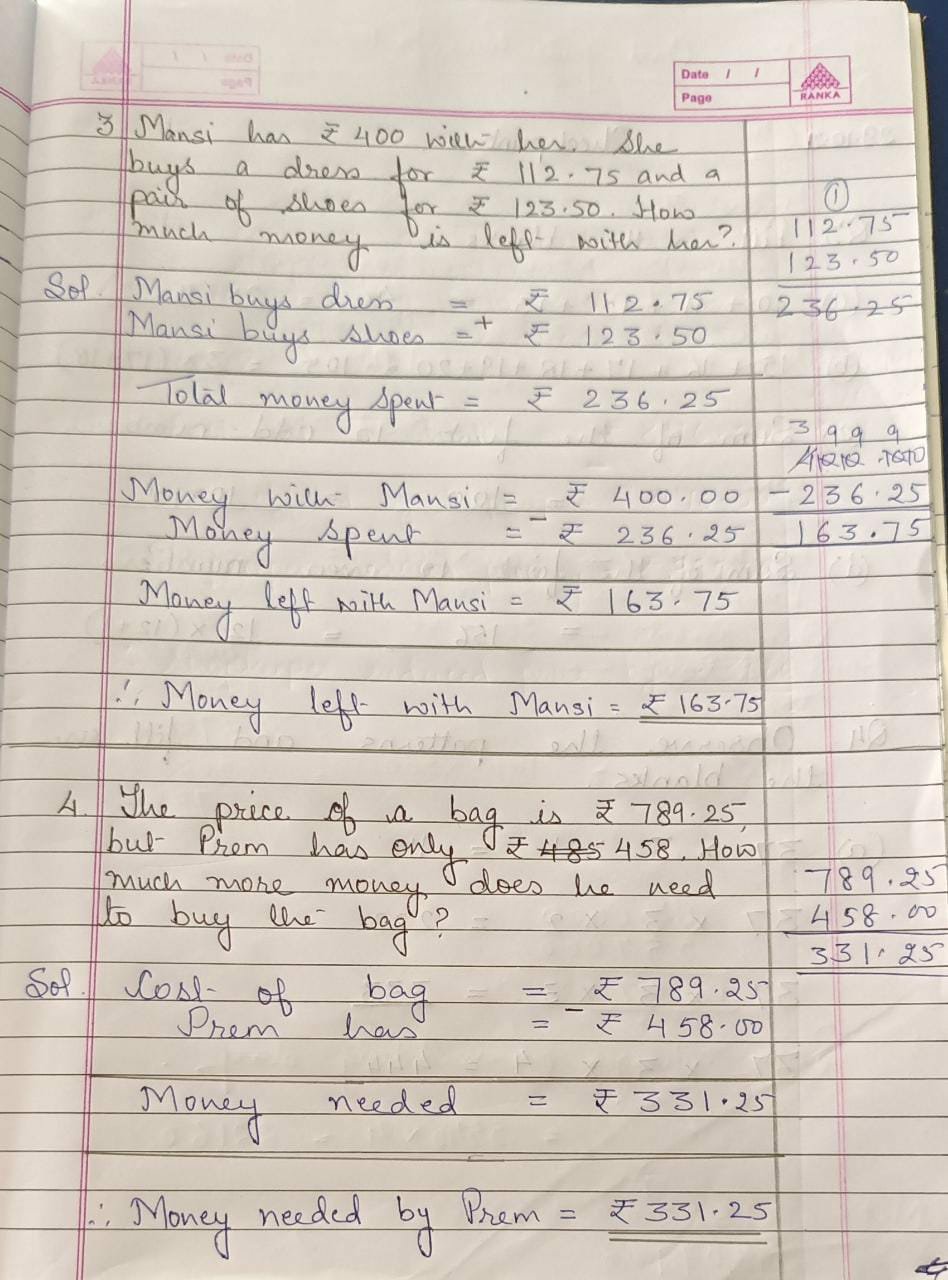 Date / /
Page
RANKA
3 Mansi has ₹ 400 with her. She
buys a dress for ₹ 112.75 and a
pair of shoes for ₹ 123.50. How
much money is left with her?
1
112.75
123.50
236.25
Sol. Mansi buys dress = ₹ 112.75
Mansi buys shoes = + ₹ 123.50
Total money spent = ₹ 236.25
3 9 9 9
Money with Mansi = ₹ 400.00
Money spent = - ₹ 236.25
- 236.25
163.75
Money left with Mansi = ₹ 163.75
∴ Money left with Mansi = ₹ 163.75
4. The price of a bag is ₹ 789.25,
but Prem has only ₹ 485 458. How
much more money does he need
to buy the bag?
789.25
458.00
331.25
Sol. Cost of bag = ₹ 789.25
Prem has = - ₹ 458.00
Money needed = ₹ 331.25
∴ Money needed by Prem = ₹ 331.25